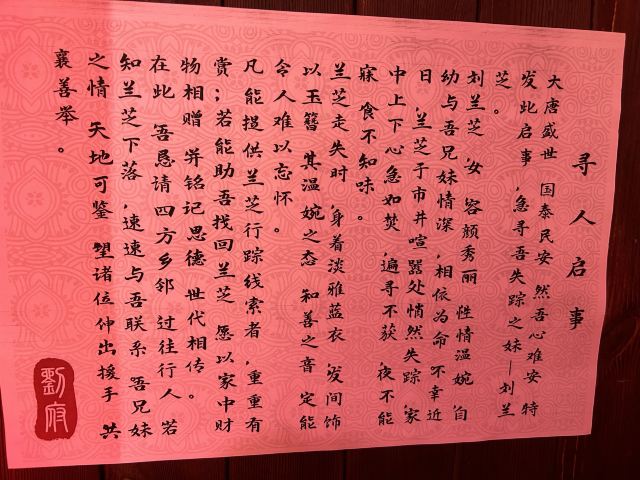 寻人启事
大唐盛世 国泰民安 然吾心难安 特
发此启事,急寻吾失踪之妹—刘兰
芝。
刘兰芝 女 容颜秀丽 性情温婉 自
幼与吾兄妹情深,相依为命 不幸近
日,兰芝于市井喧嚣处悄然失踪,家
中上下心急如焚,遍寻不获,夜不能
寐,食不知味。
兰芝走失时,身着淡雅蓝衣,发间饰
以玉簪 其温婉之态 和善之音 定能
令人难以忘怀。
凡能提供兰芝行踪线索者,重重有
赏;若能助吾找回兰芝 愿以家中财
物相赠 并铭记恩德 世代相传。
在此 吾恳请四方乡邻 过往行人 若
知兰芝下落,速速与吾联系 吾兄妹
之情 天地可鉴 望诸位伸出援手 共
襄善举。
劉府